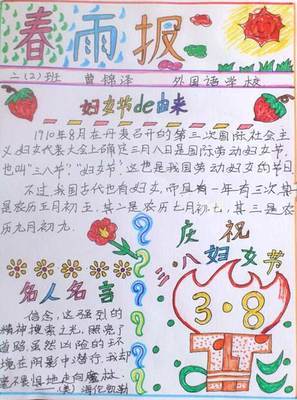 春雨报
二(2)班 曹锦泽 外国语学校
妇女节de由来
1910年8月在丹麦召开的第三次国际社会主
义妇女代表大会上确定三月八日是国际劳动妇女节,
也叫"三八节""妇女节"这也是我国劳动妇女的节日
不过,我国古代也有妇女节,而且有一年有三次,其一
是农历五月初五,其二是农历七月初七,其三是农
历九月初九.
庆祝
三八妇女节
3·8
名人名言
信念,这强烈的
精神搜索之光,照亮了
道路,虽然凶险的环
境在阴影中潜行,我却
毫不畏惧地走向魔林.
——(美)海伦凯勒